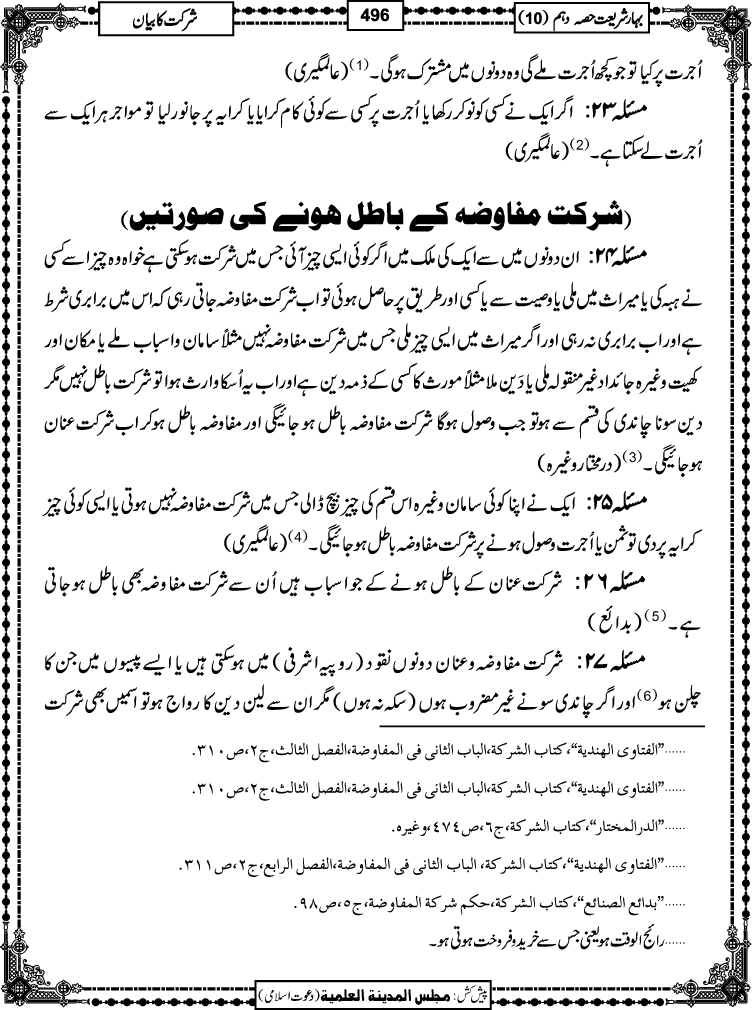 بہارِ شریعت حصہ دہم (10)
496
شرکت کا بیان
اُجرت پر کیا تو جو کچھ اُجرت ملے گی وہ دونوں میں مشترک ہوگی۔(1) (عالمگیری)
مسئلہ ۲۳: اگر ایک نے کسی کو نوکر رکھا یا اُجرت پر کسی سے کوئی کام کرایا یا کرایہ پر جانور لیا تو مواجر ہر ایک سے
اُجرت لے سکتا ہے۔(2) (عالمگیری)
(شرکت مفاوضہ کے باطل ہونے کی صورتیں)
مسئلہ ۲۴: ان دونوں میں سے ایک کی ملک میں اگر کوئی ایسی چیز آئی جس میں شرکت ہوسکتی ہے خواہ وہ چیز اسے کسی
نے ہبہ کی یا میراث میں ملی یا وصیت سے یا کسی اور طریق پر حاصل ہوئی تو اب شرکت مفاوضہ جاتی رہی کہ اس میں برابری شرط
ہے اور اب برابری نہ رہی اور اگر میراث میں ایسی چیز ملی جس میں شرکت مفاوضہ نہیں مثلاً سامان واسباب ملے یا مکان اور
کھیت وغیرہ جائداد غیر منقولہ ملی یا دَین ملا مثلاً مورث کا کسی کے ذمہ دین ہے اور اب یہ اُسکا وارث ہوا تو شرکت باطل نہیں مگر
دین سونا چاندی کی قسم سے ہو تو جب وصول ہوگا شرکت مفاوضہ باطل ہو جائیگی اور مفاوضہ باطل ہوکر اب شرکت عنان
ہو جائیگی۔(3) (درمختار وغیرہ)
مسئلہ ۲۵: ایک نے اپنا کوئی سامان وغیرہ اس قسم کی چیز بیچ ڈالی جس میں شرکت مفاوضہ نہیں ہوتی یا ایسی کوئی چیز
کرایہ پر دی تو ثمن یا اُجرت وصول ہونے پر شرکت مفاوضہ باطل ہو جائیگی۔(4) (عالمگیری)
مسئلہ ۲۶: شرکت عنان کے باطل ہونے کے جو اسباب ہیں اُن سے شرکت مفاوضہ بھی باطل ہو جاتی
ہے۔(5) (بدائع)
مسئلہ ۲۷: شرکت مفاوضہ وعنان دونوں نقود (روپیہ اشرفی) میں ہوسکتی ہیں یا ایسے پیسوں میں جن کا
چلن ہو(6) اور اگر چاندی سونے غیر مضروب ہوں (سکہ نہ ہوں) مگر ان سے لین دین کا رواج ہو تو اسمیں بھی شرکت
......”الفتاوی الھندیۃ“،کتاب الشرکۃ،الباب الثانی فی المفاوضۃ،الفصل الثالث،ج۲،ص۳۱۰.
......”الفتاوی الھندیۃ“،کتاب الشرکۃ،الباب الثانی فی المفاوضۃ،الفصل الثالث،ج۲،ص۳۱۰.
......”الدرالمختار“،کتاب الشرکۃ،ج۶،ص۴۷۴،وغیرہ.
......”الفتاوی الھندیۃ“،کتاب الشرکۃ، الباب الثانی فی المفاوضۃ،الفصل الرابع،ج۲،ص۳۱۱.
......”بدائع الصنائع“،کتاب الشرکۃ،حکم شرکۃ المفاوضۃ،ج۵،ص۹۸.
......رائج الوقت ہو یعنی جس سے خرید وفروخت ہوتی ہو۔
پیش کش: مجلس المدینۃ العلمیۃ (دعوت اسلامی)